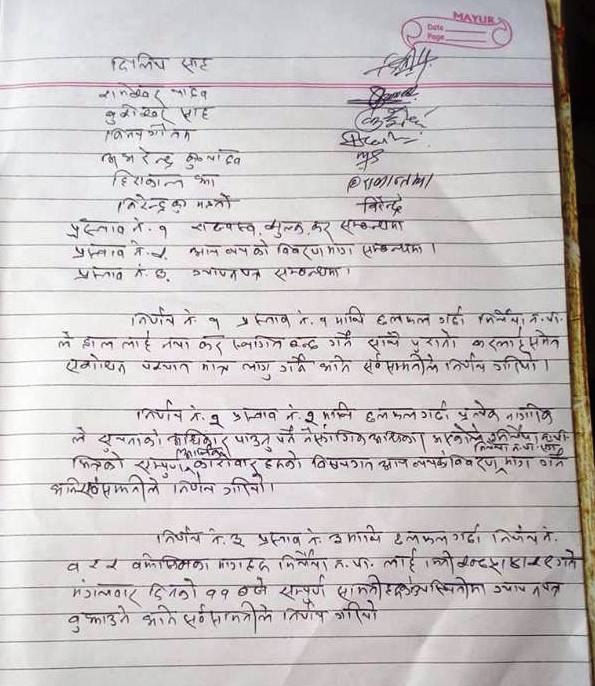 MAYUR
Date
Page
दिलिप साह
रामेश्वर यादव
कुशेश्वर साह
विनय गौतम
अमरेन्द्र कु. यादव
हिरालाल झा
विरेन्द्र कु महतो विरेन्द्र
प्रस्ताव नं. १ राजश्व, शुल्क, कर सम्बन्धमा
प्रस्ताव नं. २. आय व्ययको विवरण माग सम्बन्धमा।
प्रस्ताव नं. ३. ज्ञापनपत्र सम्बन्धमा।
निर्णय नं १ प्रस्ताव नं. १ माथि छलफल गर्दा मिर्चैया न.पा.
ले हाल लाई नया कर स्थगित बन्द गर्न साथै पुरानो करलाई समेत
संशोधन पश्चात मात्र लागु गर्न भनि सर्वसम्मतीले निर्णय गरियो।
निर्णय नं. २ प्रस्ताव नं. २ माथि छलफल गर्दा प्रत्येक नागरिक
ले सुचनाको अधिकार पाउनु पर्ने नैसर्गिक अधिकार भएकोले मिर्चैया न.पा.
भित्रको सम्पुर्ण आर्थिक कारोवार हरुको विषयगत आय व्ययको विवरण मिर्चैया न.पा. लाई माग गर्ने
भनि सर्वसम्मतीले निर्णय गरियो।
निर्णय नं. ३ प्रस्ताव नं. ३ माथि छलफल गर्दा निर्णय नं.
१ र २ बमोजिमका मागहरु मिर्चैया न.पा. लाई गते
मंगलवार दिनको ११ बजे सम्पूर्ण उपस्थितीमा ज्ञापन पत्र
बुझाउने भनि सर्वसम्मतीले निर्णय गरियो